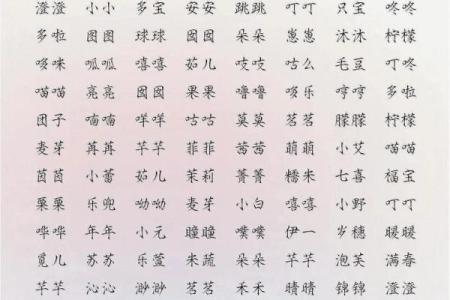 澄澄 小小 多宝 安安 跳跳 叮叮 只宝 咚咚
多啦 图图 球球 圆圆 朵朵 崽崽 沐沐 柠檬
哆咪 呱呱 嘻嘻 茹儿 吱吱 咕么 毛豆 叮咚
喵喵 亮亮 囡囡 果果 噜噜 哆乐 哼哼 多啦
团子 喃喃 咩咩 咕咕 莫莫 茗茗 朦朦 柠檬
麦芽 苒苒 芊芊 菲菲 茜茜 萌萌 小艾 喵喵
茵茵 小蕾 茹儿 茉莉 菁菁 糯米 七喜 福宝
栗栗 乐兜 呦呦 麦芽 小白 嘻嘻 小野 叮叮
哗哗 年年 小元 瞳瞳 噗噗 伊一 岁穗 暖暖
觅儿 苏苏 乐萱 米蔬 朵朵 芊芊 泡芙 满春
芊芊 沁沁 渺渺 茗茗 禾禾 晴晴 锦锦 澄澄